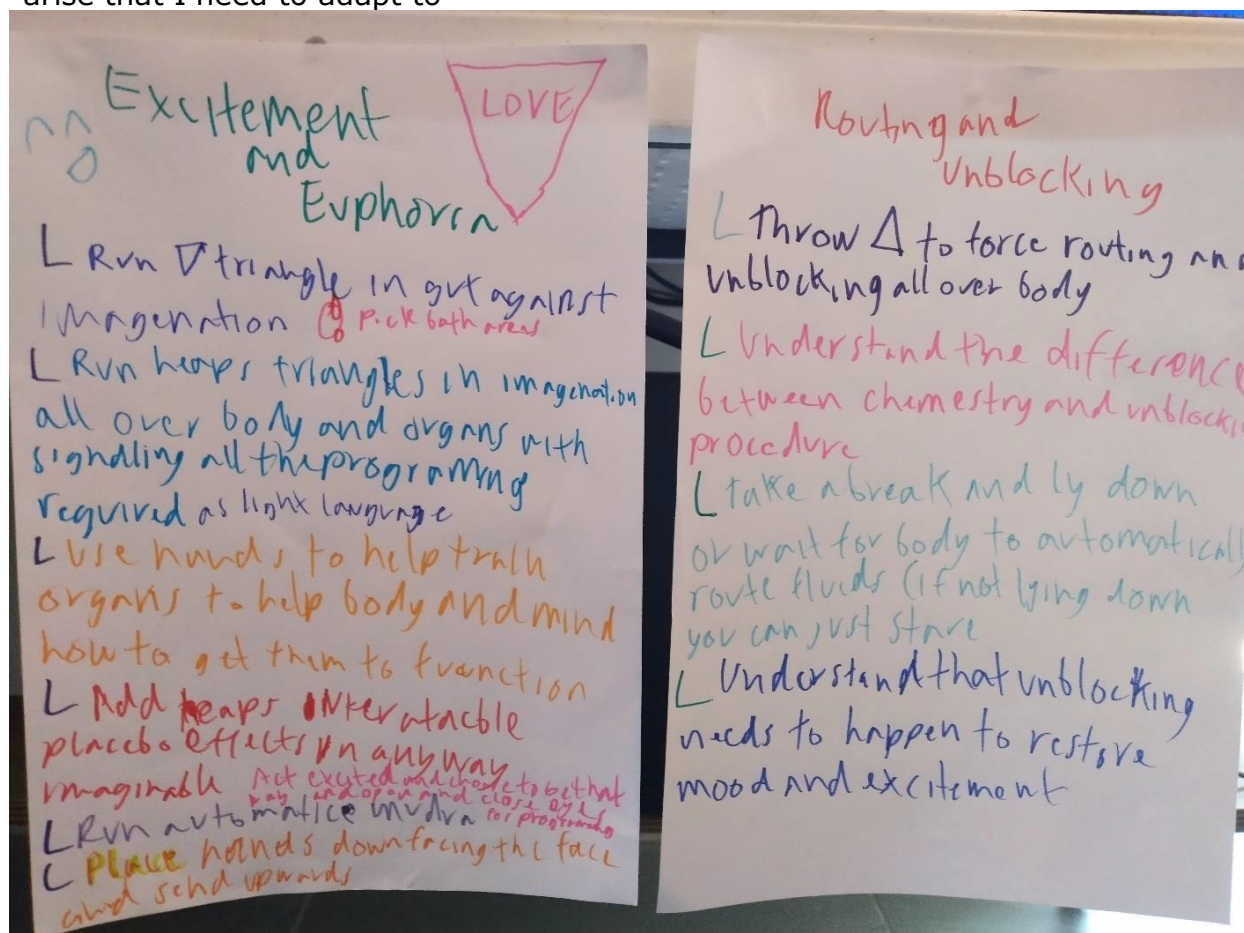 arise that I need to adapt to
Excitement
and
Euphoria
LOVE
L Run ▽ triangle in gut against
imagenation Pick both areas
L Run heaps triangles in imagenation
all over body and organs with
signalling all the programing
required as light language
L Use hands to help train
organs to help body and mind
how to get them to function
L Add heaps
placebo effects in anyway
imaginable Act excited and chose to be that
way and open and close eyes
for programing
L Run automatice mudra
L Place hands down facing the face
and send upwards
Routing and
Unblocking
L Throw △ to force routing and
unblocking all over body
L Understand the difference
between chemestry and
procedure
L take a break and ly down
or wait for body to automatically
route fluids (if not lying down
you can just stare
L Understand that unblocking
needs to happen to restore
mood and excitement